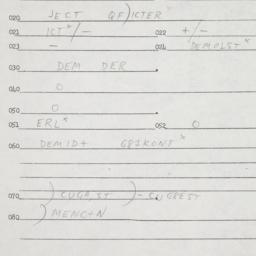 020 JECT QF)ICTER
021 ICT*/- 022 +/-
023 - 024 DEMOLST*
030 DEM DER
040 O
050 O
051 ERL* 052 O
060 DEMID+ G81KONT*
070 )CUGA,ST )-CUGREST
080 )MENC+N